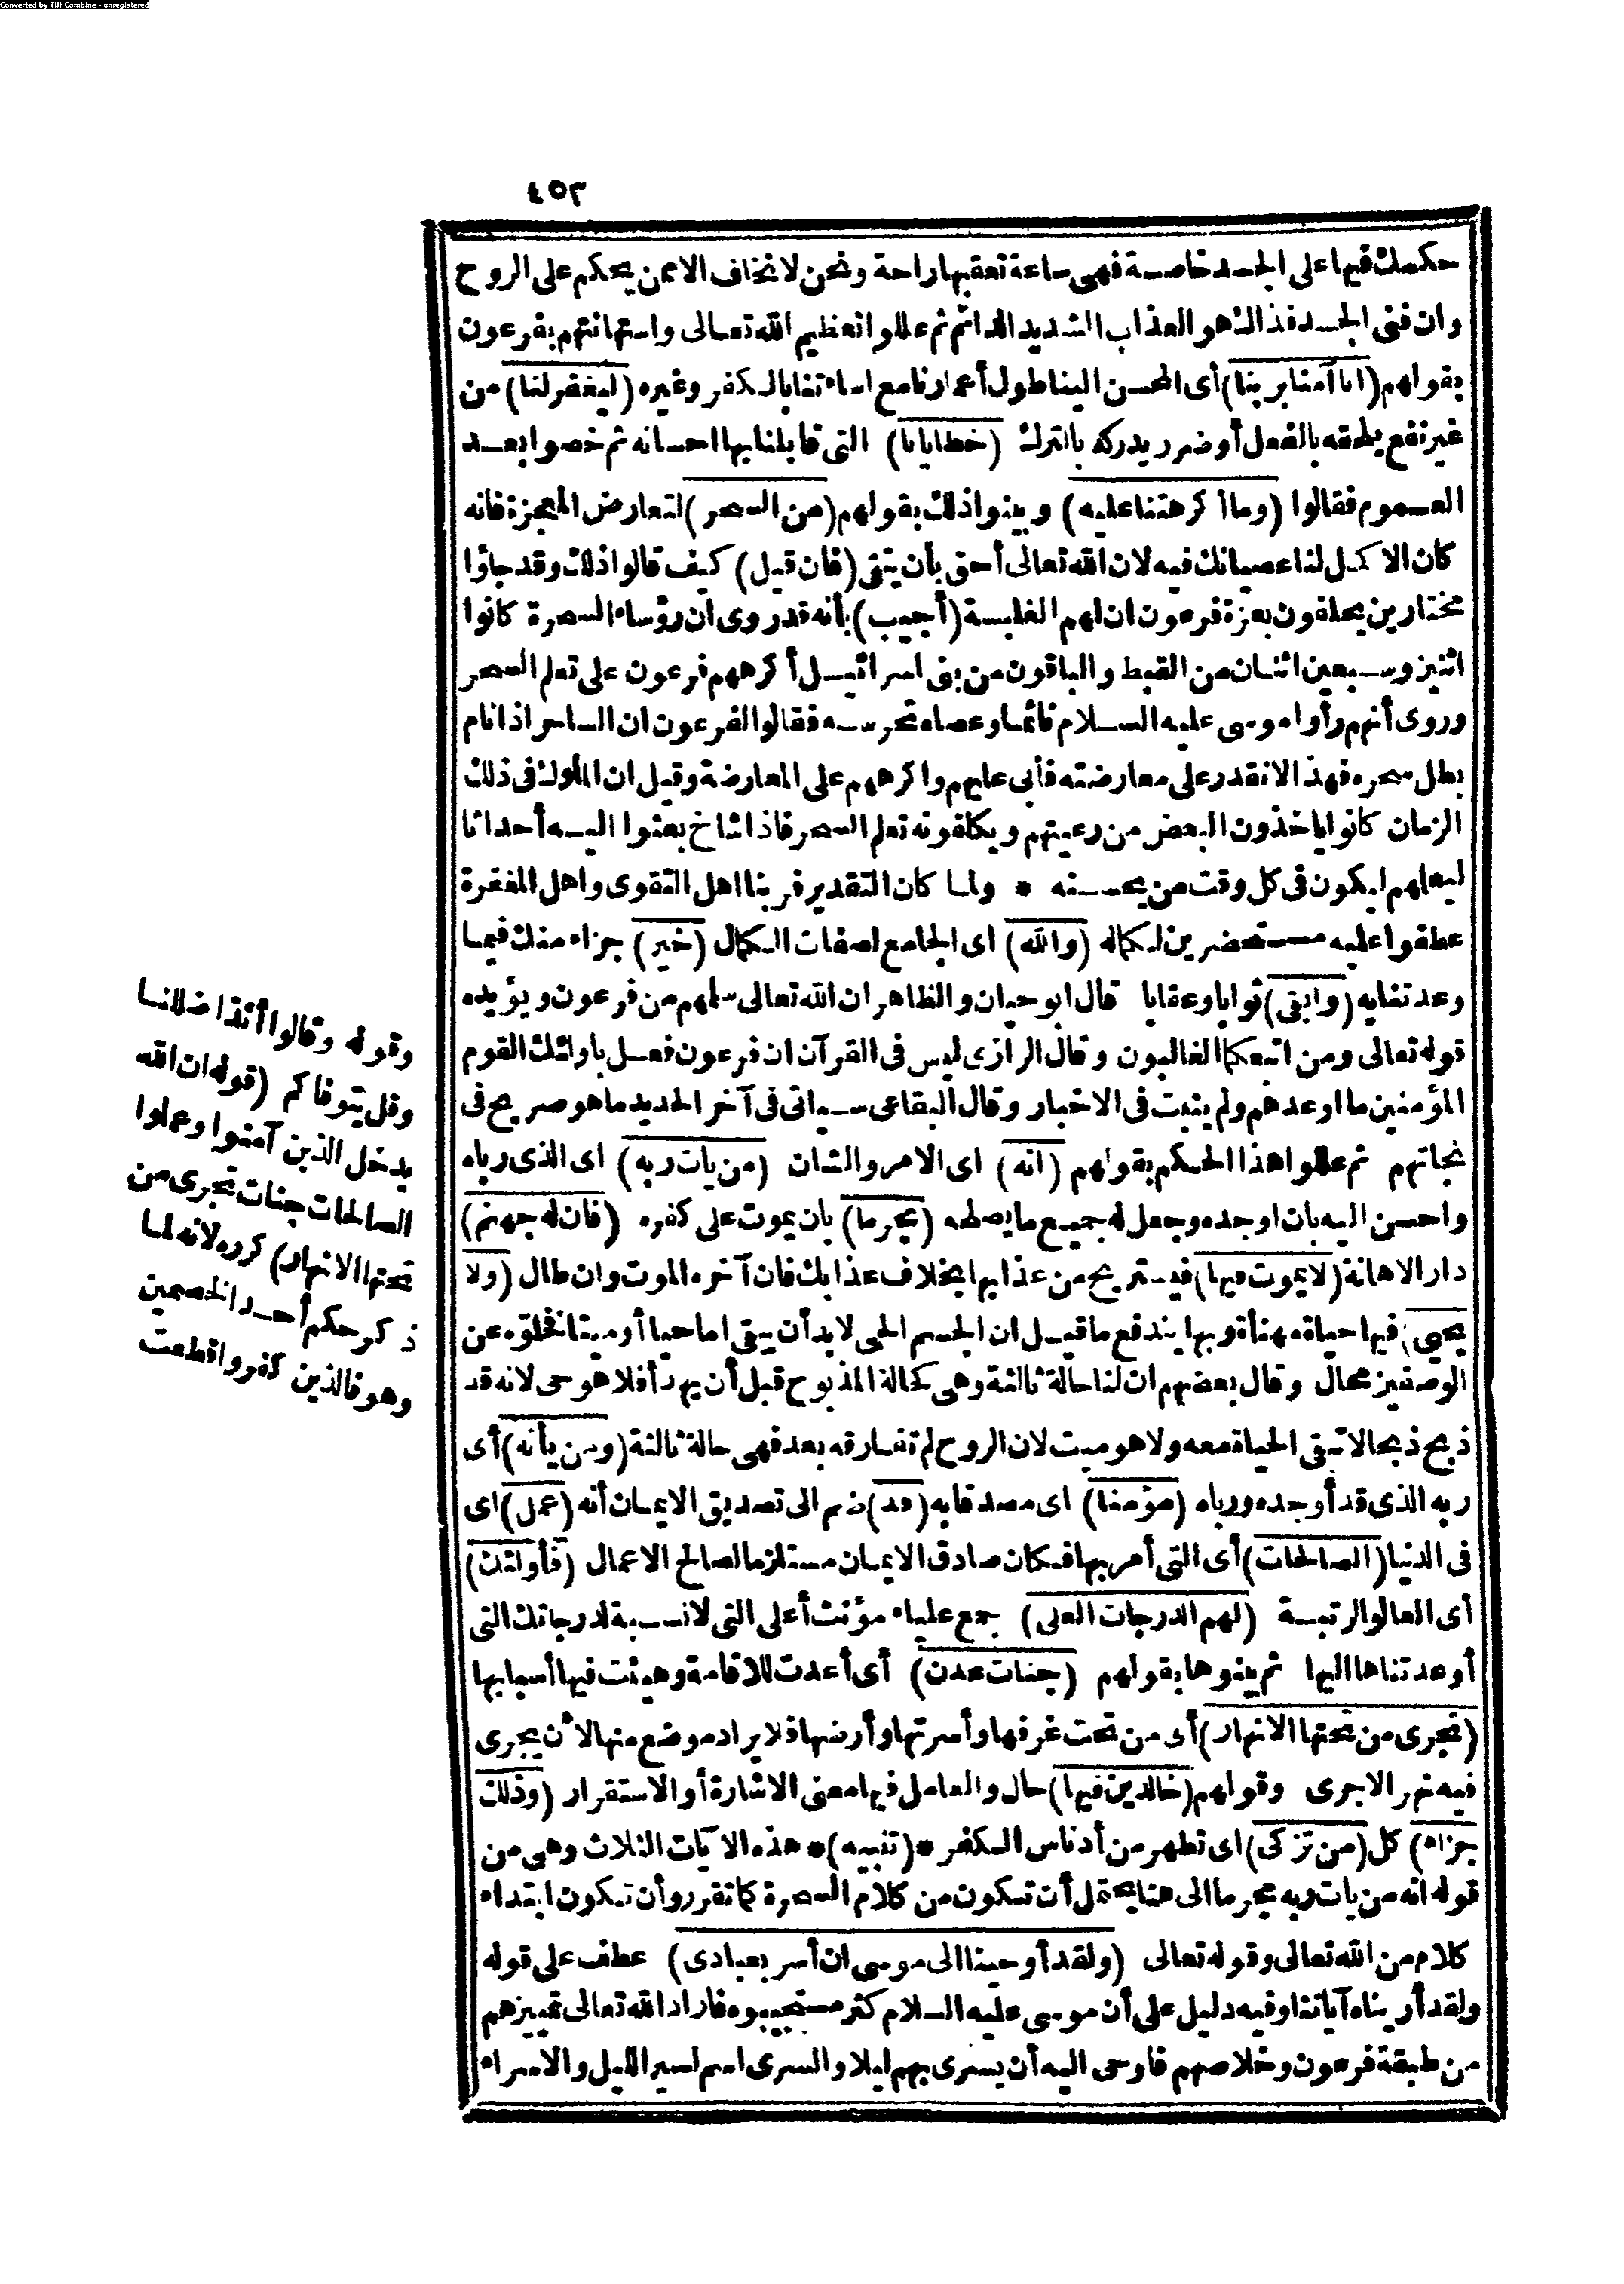 Converted by Tiff Combine - unregistered
٤٥٣
حكمك فيها على الجسد خاصة فهى ساعة تعقبها راحة ونحن لا نخاف الا ممن يحكم على الروح
وان فنى الجسد فذلك هو العذاب الشديد الدائم ثم عللوا تعظيم الله تعالى واستهانتهم بفرعون
بقولهم (انا آمنا بربنا) أى المحسن الينا طول أعمارنا مع اساءتنا بالكفر وغيره (ليغفر لنا) من
غير نفع يلحقه بالفعل أو ضرر يدركه بالترك (خطايانا) التى قابلنا بها احسانه ثم خصوا بعد
العموم فقالوا (وما أكرهتنا عليه) وبينوا ذلك بقولهم (من السحر) لتعارض المعجزة فانه
كان الاكمل لنا عصيانك فيه لان الله تعالى أحق بأن يتقى (فان قيل) كيف قالوا ذلك وقد جاؤا
مختارين يحلفون بعزة فرعون ان لهم الغلبة (أجيب) بأنه قد روى ان رؤساء السحرة كانوا
اثنين وسبعين اثنان من القبط والباقون من بنى اسرائيل أكرههم فرعون على تعلم السحر
وروى أنهم رأوا موسى عليه السلام نائما وعصاه تحرسه فقالوا لفرعون ان الساحر اذا نام
بطل سحره فهذا لا نقدر على معارضته فأبى عليهم وأكرههم على المعارضة وقيل ان الملوك فى ذلك
الزمان كانوا ياخذون البعض من رعيتهم ويكلفونه تعلم السحر فاذا شاخ بعثوا اليه أحداثا
ليعلمهم ليكون فى كل وقت من يحسنه * ولما كان التقدير فربنا اهل التقوى واهل المغفرة
عطفوا عليه مستحضرين لكماله (والله) اى الجامع لصفات الكمال (خير) جزاء منك فيما
وعدتنا به (وابقى) ثوابا وعقابا قال ابو حيان والظاهر ان الله تعالى سلمهم من فرعون ويؤيده
قوله تعالى ومن اتبعكما الغالبون وقال الرازى ليس فى القرآن ان فرعون فعل باولئك القوم
المؤمنين ما اوعدهم ولم يثبت فى الاخبار وقال البقاعى سيأتى فى آخر الحديد ما هو صريح فى
نجاتهم ثم عللوا هذا الحكم بقولهم (انه) اى الامر والشان (من يات ربه) اى الذى رباه
واحسن اليه بان اوجده وجعل له جميع ما يصلحه (مجرما) بان يموت على كفره (فان له جهنم)
دار الاهانة (لا يموت فيها) فيستريح من عذابها بخلاف عذابك فان آخره الموت وان طال (ولا
يحيى) فيها حياة مهنأة وبها يندفع ما قيل ان الجسم الحى لا بد أن يبقى اما حيا أو ميتا فخلوّه عن
الوصفين محال وقال بعضهم ان لنا حالة ثالثة وهى كحالة المذبوح قبل أن يهدأ فلا هو حى لانه قد
ذبح ذبحا لا تبقى الحياة معه ولا هو ميت لان الروح لم تفارقه بعد فهى حالة ثالثة (ومن يأته) أى
ربه الذى قد أوجده ورباه (مؤمنا) اى مصدقا به (قد) ضم الى تصديق الايمان أنه (عمل) اى
فى الدنيا (الصالحات) أى التى أمر بها فكان صادق الايمان مستلزما لصالح الاعمال (فأولئك)
أى العالو الرتبة (لهم الدرجات العلى) جمع علياء مؤنث أعلى التى لا نسبة لدرجاتك التى
أوعدتناها اليها ثم بينوها بقولهم (جنات عدن) أى أعدت للاقامة وهيئت فيها أسبابها
(تجرى من تحتها الانهار) أى من تحت غرفها وأسرتها وأرضها فلا يراد موضع منها لأن يجرى
فيه نهر الا جرى وقولهم (خالدين فيها) حال والعامل فيها معنى الاشارة أو الاستقرار (وذلك
جزاء) كل (من تزكى) اى تطهر من أدناس الكفر *(تنبيه)* هذه الآيات الثلاث وهى من
قوله انه من يات ربه مجرما الى هنا يحتمل أن تكون من كلام السحرة كما تقرر وأن تكون ابتداء
كلام من الله تعالى وقوله تعالى (ولقد أوحينا الى موسى ان أسر بعبادى) عطف على قوله
ولقد أريناه آياتنا وفيه دليل على أن موسى عليه السلام كثر مستجيبوه فاراد الله تعالى تمييزهم
من طبقة فرعون وخلاصهم فاوحى اليه أن يسرى بهم ليلا والسرى اسم لسير الليل والاسراء
وقوله وقالوا أئذا ضللنا
وقل يتوفاكم (قوله ان الله
يدخل الذين آمنوا وعملوا
الصالحات جنات تجرى من
تحتها الانهار) كرره لانه لما
ذكر حكم أحد الخصمين
وهو فالذين كفروا قطعت